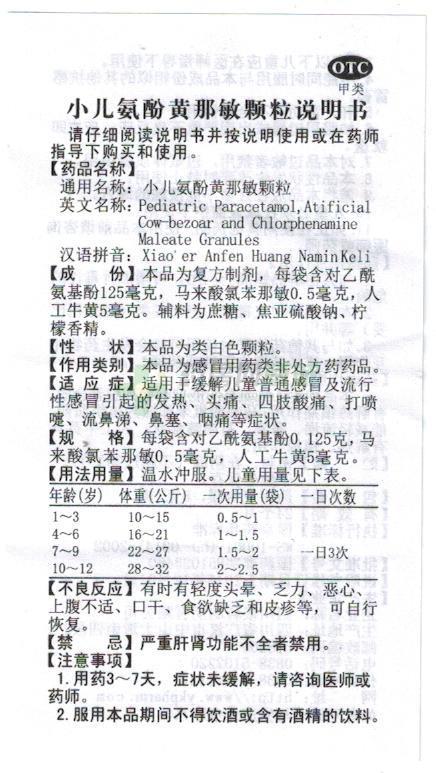 OTC
甲类
小儿氨酚黄那敏颗粒说明书
请仔细阅读说明书并按说明使用或在药师
指导下购买和使用。
【药品名称】
通用名称：小儿氨酚黄那敏颗粒
英文名称：Pediatric Paracetamol,Atificial
Cow-bezoar and Chlorphenamine
Maleate Granules
汉语拼音：Xiao'er Anfen Huang NaminKeli
【成 份】本品为复方制剂，每袋含对乙酰
氨基酚125毫克，马来酸氯苯那敏0.5毫克，人
工牛黄5毫克。辅料为蔗糖、焦亚硫酸钠、柠
檬香精。
【性 状】本品为类白色颗粒。
【作用类别】本品为感冒用药类非处方药药品。
【适 应 症】适用于缓解儿童普通感冒及流行
性感冒引起的发热、头痛、四肢酸痛、打喷
嚏、流鼻涕、鼻塞、咽痛等症状。
【规 格】每袋含对乙酰氨基酚0.125克，马
来酸氯苯那敏0.5毫克，人工牛黄5毫克。
【用法用量】温水冲服。儿童用量见下表。
年龄(岁) 体重(公斤) 一次用量(袋) 一日次数
1～3 10～15 0.5～1
4～6 16～21 1～1.5
7～9 22～27 1.5～2 一日3次
10～12 28～32 2～2.5
【不良反应】有时有轻度头晕、乏力、恶心、
上腹不适、口干、食欲缺乏和皮疹等，可自行
恢复。
【禁 忌】严重肝肾功能不全者禁用。
【注意事项】
1.用药3～7天，症状未缓解，请咨询医师或
药师。
2.服用本品期间不得饮酒或含有酒精的饮料。